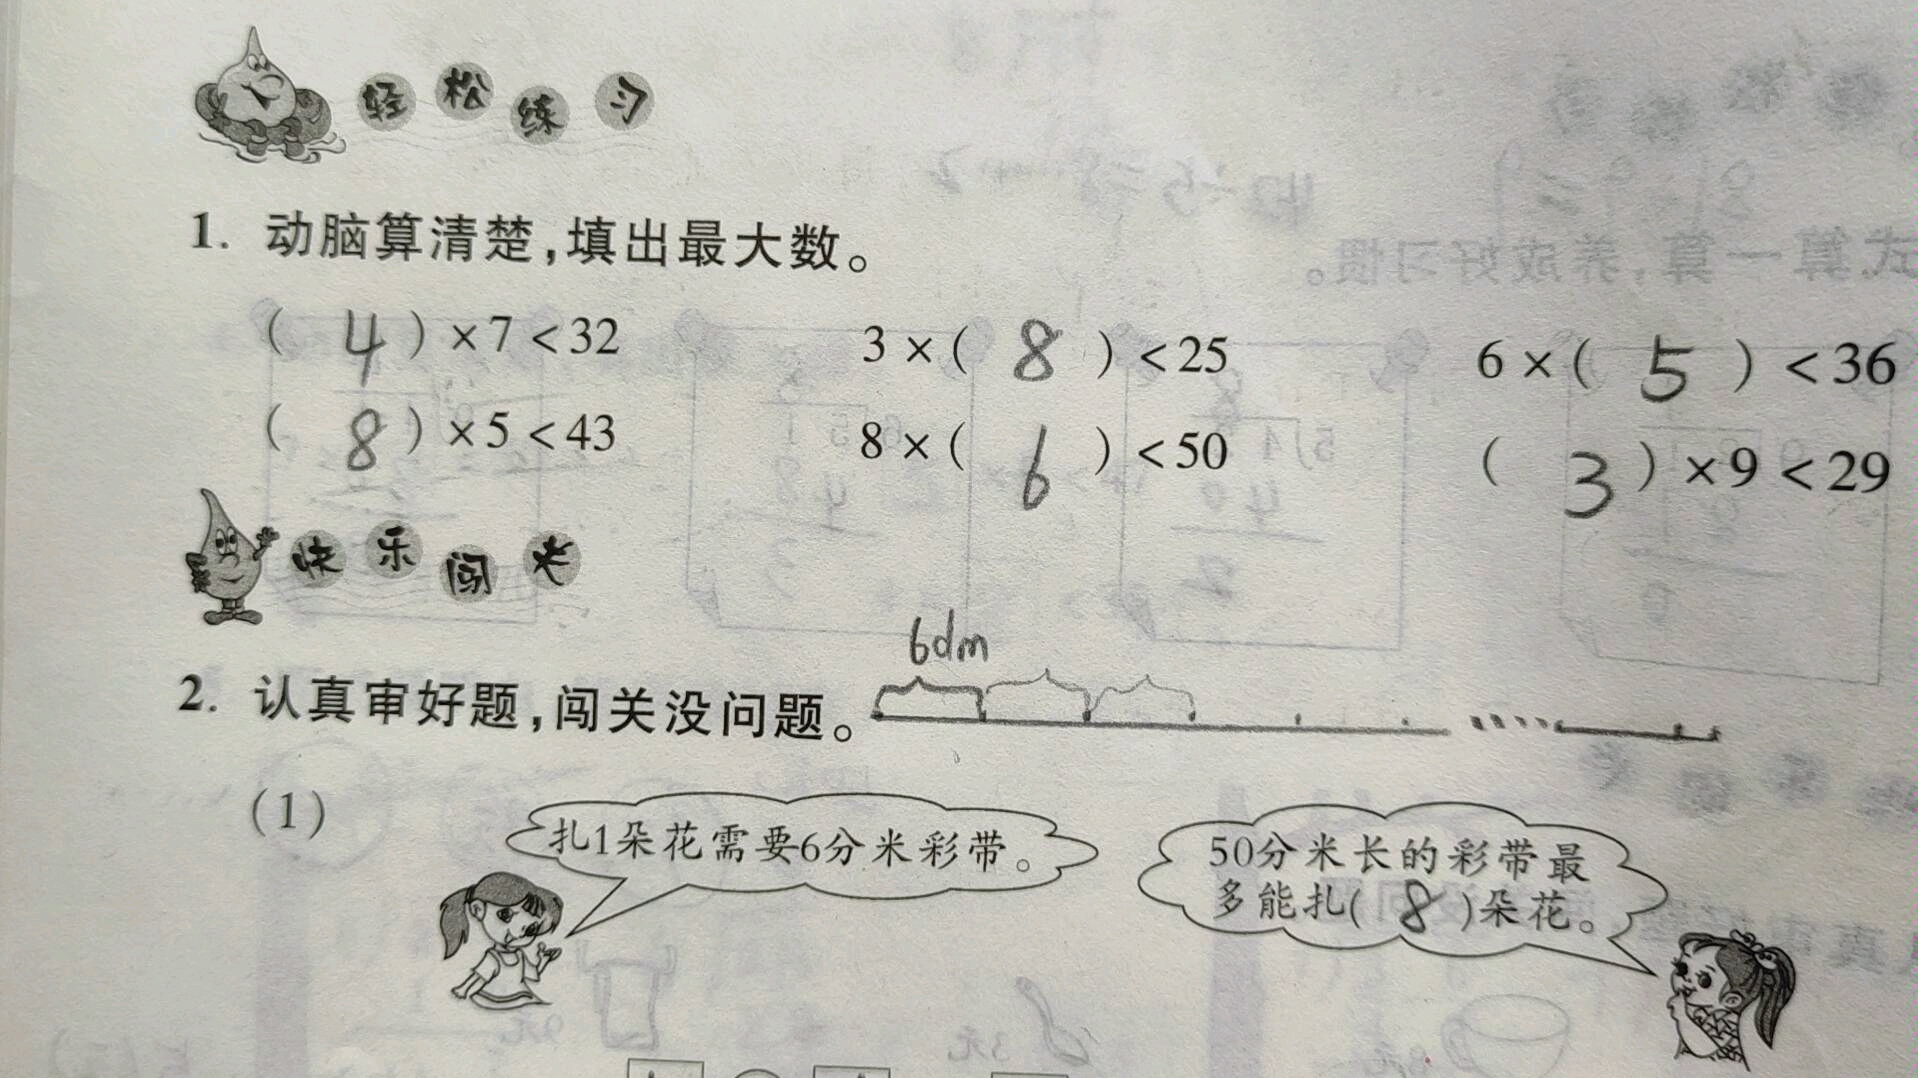 轻松练习
1. 动脑算清楚,填出最大数。
( 4 )×7<32 3×( 8 )<25 6×( 5 )<36
( 8 )×5<43 8×( 6 )<50 ( 3 )×9<29
快乐闯关
6dm
2. 认真审好题,闯关没问题。
(1)
扎1朵花需要6分米彩带。
50分米长的彩带最
多能扎( 8 )朵花。